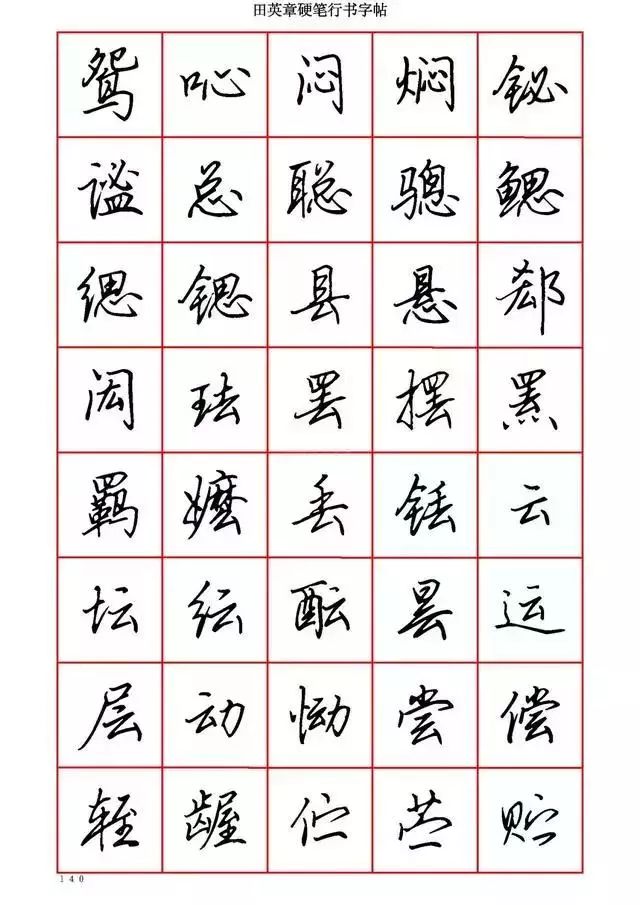 田英章硬笔行书字帖
鸳 吣 闷 焖 铋
谧 总 聪 骢 鳃
缌 锶 县 悬 郄
闳 珐 罢 摆 罴
羁 嬷 丢 铥 云
坛 纭 酝 昙 运
层 动 恸 尝 偿
轾 龌 伫 苎 贮
140